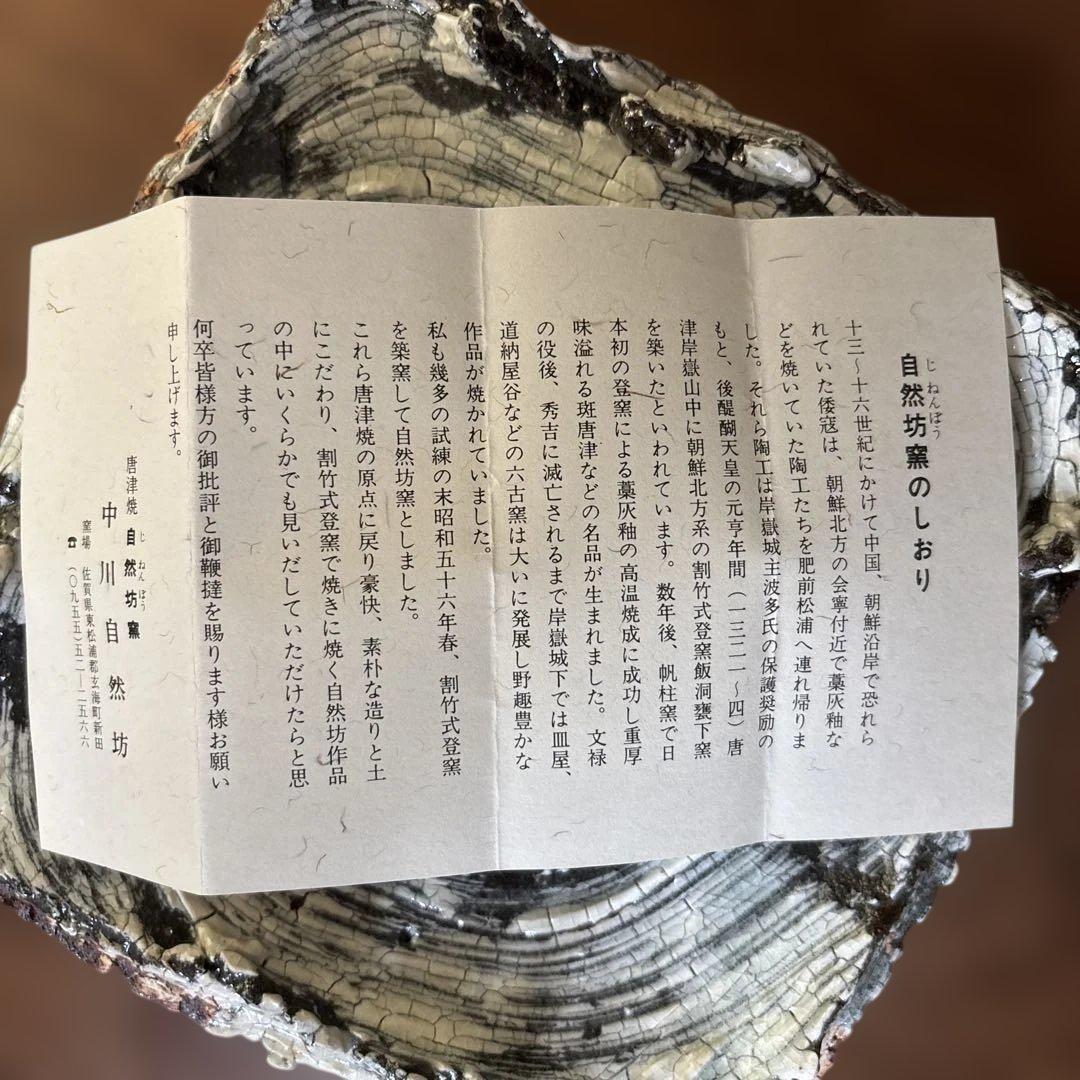 自然坊窯のしおり
じねんぼう
十三～十六世紀にかけて中国、朝鮮沿岸で恐れら
れていた倭寇は、朝鮮北方の会寧付近で藁灰釉な
どを焼いていた陶工たちを肥前松浦へ連れ帰りま
した。それら陶工は岸嶽城主波多氏の保護奨励の
もと、後醍醐天皇の元亨年間（一三二一～四）唐
津岸嶽山中に朝鮮北方系の割竹式登窯飯洞甕下窯
を築いたといわれています。数年後、帆柱窯で日
本初の登窯による藁灰釉の高温焼成に成功し重厚
味溢れる斑唐津などの名品が生まれました。文禄
の役後、秀吉に滅亡されるまで岸嶽城下では皿屋、
道納屋谷などの六古窯は大いに発展し野趣豊かな
作品が焼かれていました。
私も幾多の試練の末昭和五十六年春、割竹式登窯
を築窯して自然坊窯としました。
これら唐津焼の原点に戻り豪快、素朴な造りと土
にこだわり、割竹式登窯で焼きに焼く自然坊作品
の中にいくらかでも見いだしていただけたらと思
っています。
何卒皆様方の御批評と御鞭撻を賜ります様お願い
申し上げます。
唐津焼 自然坊窯
じねんぼう
中川自然坊
窯場 佐賀県東松浦郡玄海町新田
☎（〇九五五）五二―二五六六